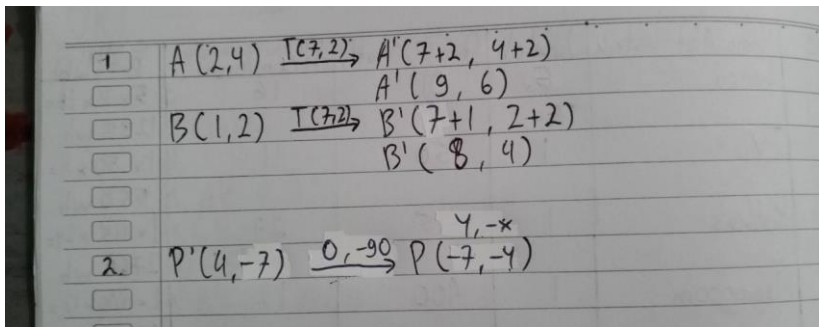 1 A(2,4) T(7,2)→ A'(7+2, 4+2)
A'(9, 6)
B(1,2) T(7,2)→ B'(7+1, 2+2)
B'(8, 4)
y,-x
2. P'(4,-7) 0,-90→ P(-7,-4)